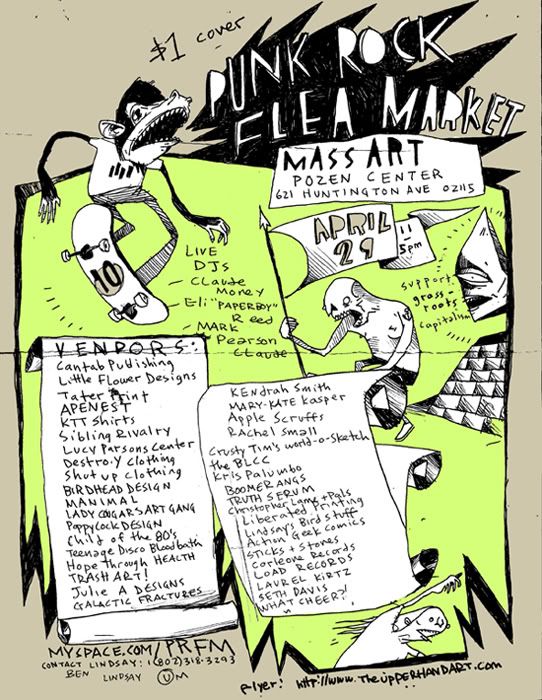 $1 cover
PUNK ROCK
FLEA MARKET
MASS ART
POZEN CENTER
621 HUNTINGTON AVE 02115
APRIL
29
11
5pm
support
grass-
roots
capitalism
10
LIVE
DJs
Claude
Money
Eli "PAPERBOY"
Reed
MARK
Pearson
Claude
VENDORS:
Cantab Publishing
Little Flower Designs
Tater Print
APENEST
KTT Shirts
Sibling Rivalry
Lucy Parsons Center
Destro.y Clothing
Shut up Clothing
BIRDHEAD DESIGN
MANIMAL
LADY COUGARS ART GANG
PoppyCock DESIGN
Child of the 80's
Teenage Disco Bloodbath
Hope Through HEALTH
TRASH ART!
Julie A DESIGNS
GALACTIC FRACTURES
KEndrah Smith
MARY-KATE Kasper
Apple Scruffs
Rachel Small
Crusty Tim's world-o-Sketch
the BLCC
Kris Palumbo
BOOMERANGS
TRUTH SERUM
Christopher Lamp + Pals
Liberated Printing
Lindsay's Bird Stuff
Action Geek Comics
Sticks + Stones
Corleone Records
LOAD RECORDS
LAUREL KIRTZ
SETH DAVIS
WHAT CHEER?!
MYSPACE.COM/PRFM
CONTACT LINDSAY: 1(802)318-3293
BEN LINDSAY UM
flyer: http://www.TheUppERHANDART.com